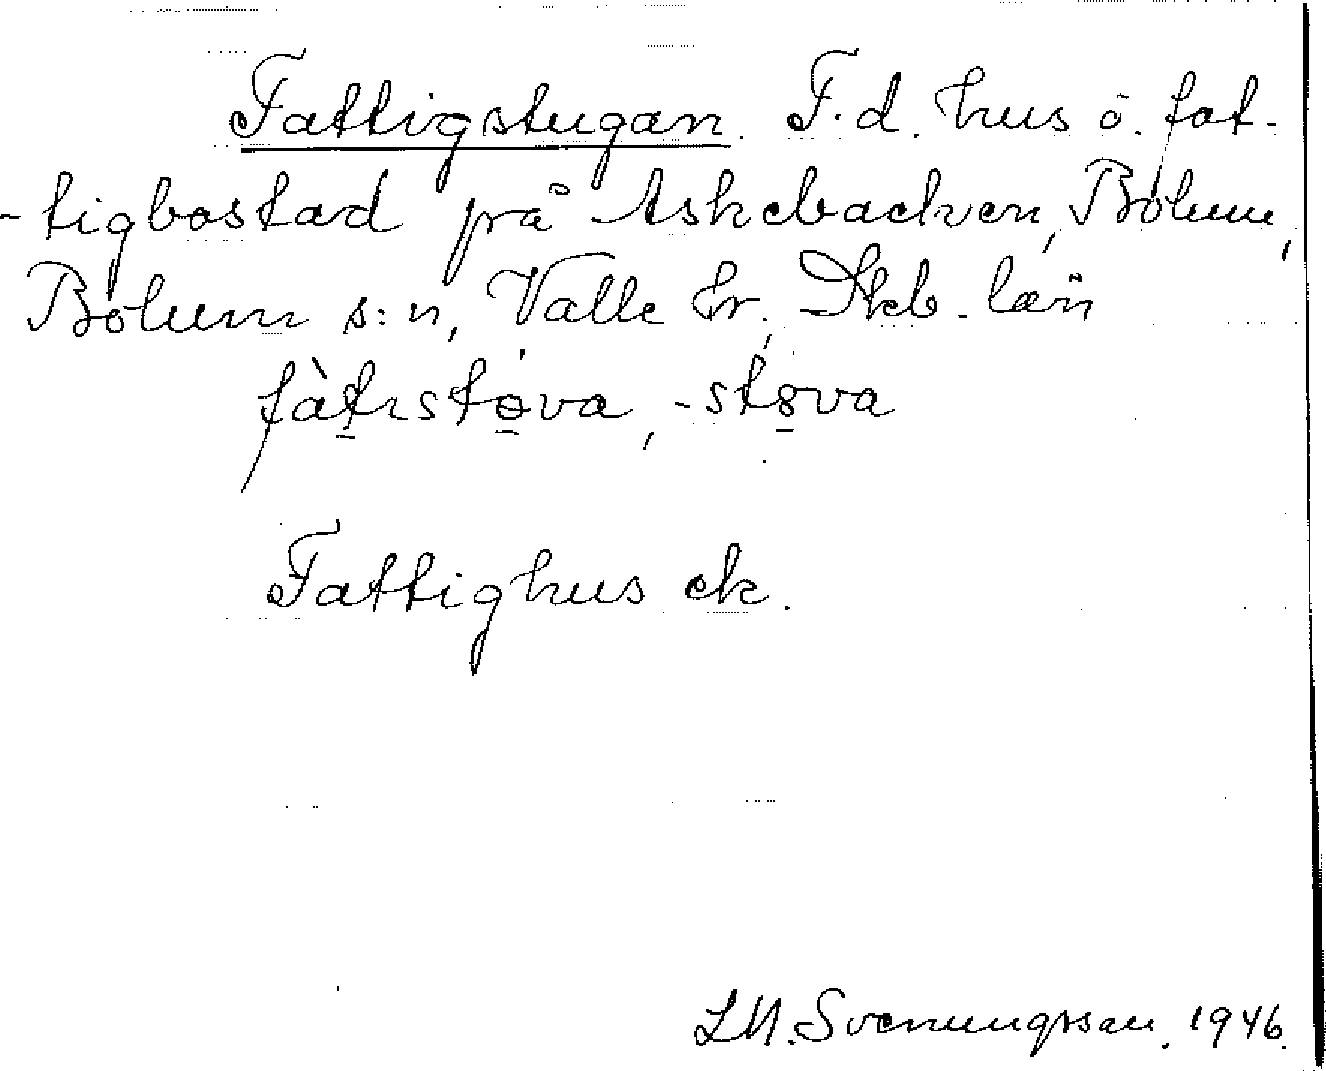 Fattigstugan. F.d. hus o. fat-
-tigbostad på Askebacken, Bolum,
Bolum s:n, Valle hr, Skb. län
fàt̲ɩsto̲va, -sto̲va
Fattighus ek.
L.M. Svenungsson. 1946.